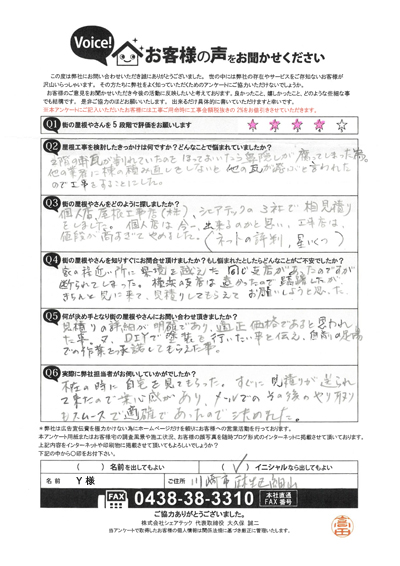 Voice!
お客様の声をお聞かせください
この度は弊社にお問い合わせいただき誠にありがとうございました。世の中には弊社の存在やサービスをご存知ないお客様が
沢山いらっしゃいます。その方たちに弊社をよく知っていただくためのアンケートにご協力いただけないでしょうか。
お客様のご意見をお聞かせいただき今後の活動に反映したいと考えております。良かったこと、嬉しかったこと、どのような些細な事
でも結構です。是非ご協力のほどお願いいたします。出来るだけ具体的に書いていただけますと幸いです。
※本アンケートにご記入いただいたお客様には工事ご用命時に工事金額税抜きの2%をお値引きさせていただきます。
Q1 街の屋根やさんを5段階で評価をお願いします
Q2 屋根工事を検討したきっかけは何ですか?どんなことで悩まれていましたか?
2階の軒瓦が割れていたのをほっておいたら垂木しが腐ってしまった為。
他の業者に棟の積み直しをしないと他の瓦が崩ると言われた
ので工事をすることにした。
Q3 街の屋根やさんをどのように探しましたか?
個人店、屋根工事店(株)、シェアテックの3社で相見積り
をしました。個人店は今一出来るのかと思い、工事店は
値段が高すぎてやめました。(ネットの評判、星いくつ)
Q4 街の屋根やさんを知りすぐにお問合せ頂けましたか?もし悩まれたとしたらどんなことがご不安でしたか?
家の程近い所に
断られてしまった。
きちんと見に来て、見積りしてもらえてお願いしようと思った。
Q5 何が決め手となり街の屋根やさんにお問い合わせ頂きましたか?
見積りの詳細が明確であり、適正価格であると思われ
た事。又、DIYで塗装を行いたい事を伝え、
での作業を承諾してもらえた事。
Q6 実際に弊社担当者がお伺いしていかがでしたか?
不在の時に自宅を見てもらった。すぐに見積りが送られ
て来たので安心感があり、メールでのその後のやり取り
もスムーズで適確であったので決めました。
※弊社は広告宣伝費を極力かけない為にホームページだけを頼りにお客様への営業活動を行っております。
本アンケート用紙またはお客様宅の調査風景や施工状況、お客様の顔写真を随時ブログ形式のインターネットに掲載させて頂いております。
上記内容をインターネットや印刷物に掲載させて頂いてもよろしいでしょうか?
下記の中から○印をお付け下さい。
( )名前を出してもよい (✓)イニシャルなら出してもよい
名前 Y様 ご住所 川崎市麻生区
FAX 0438-38-3310 本社直通 FAX番号
ご協力ありがとうございました。
株式会社シェアテック 代表取締役 大久保 誠二
当アンケートで取得したお客様の個人情報は関係法規に基づき厳正に管理いたします。